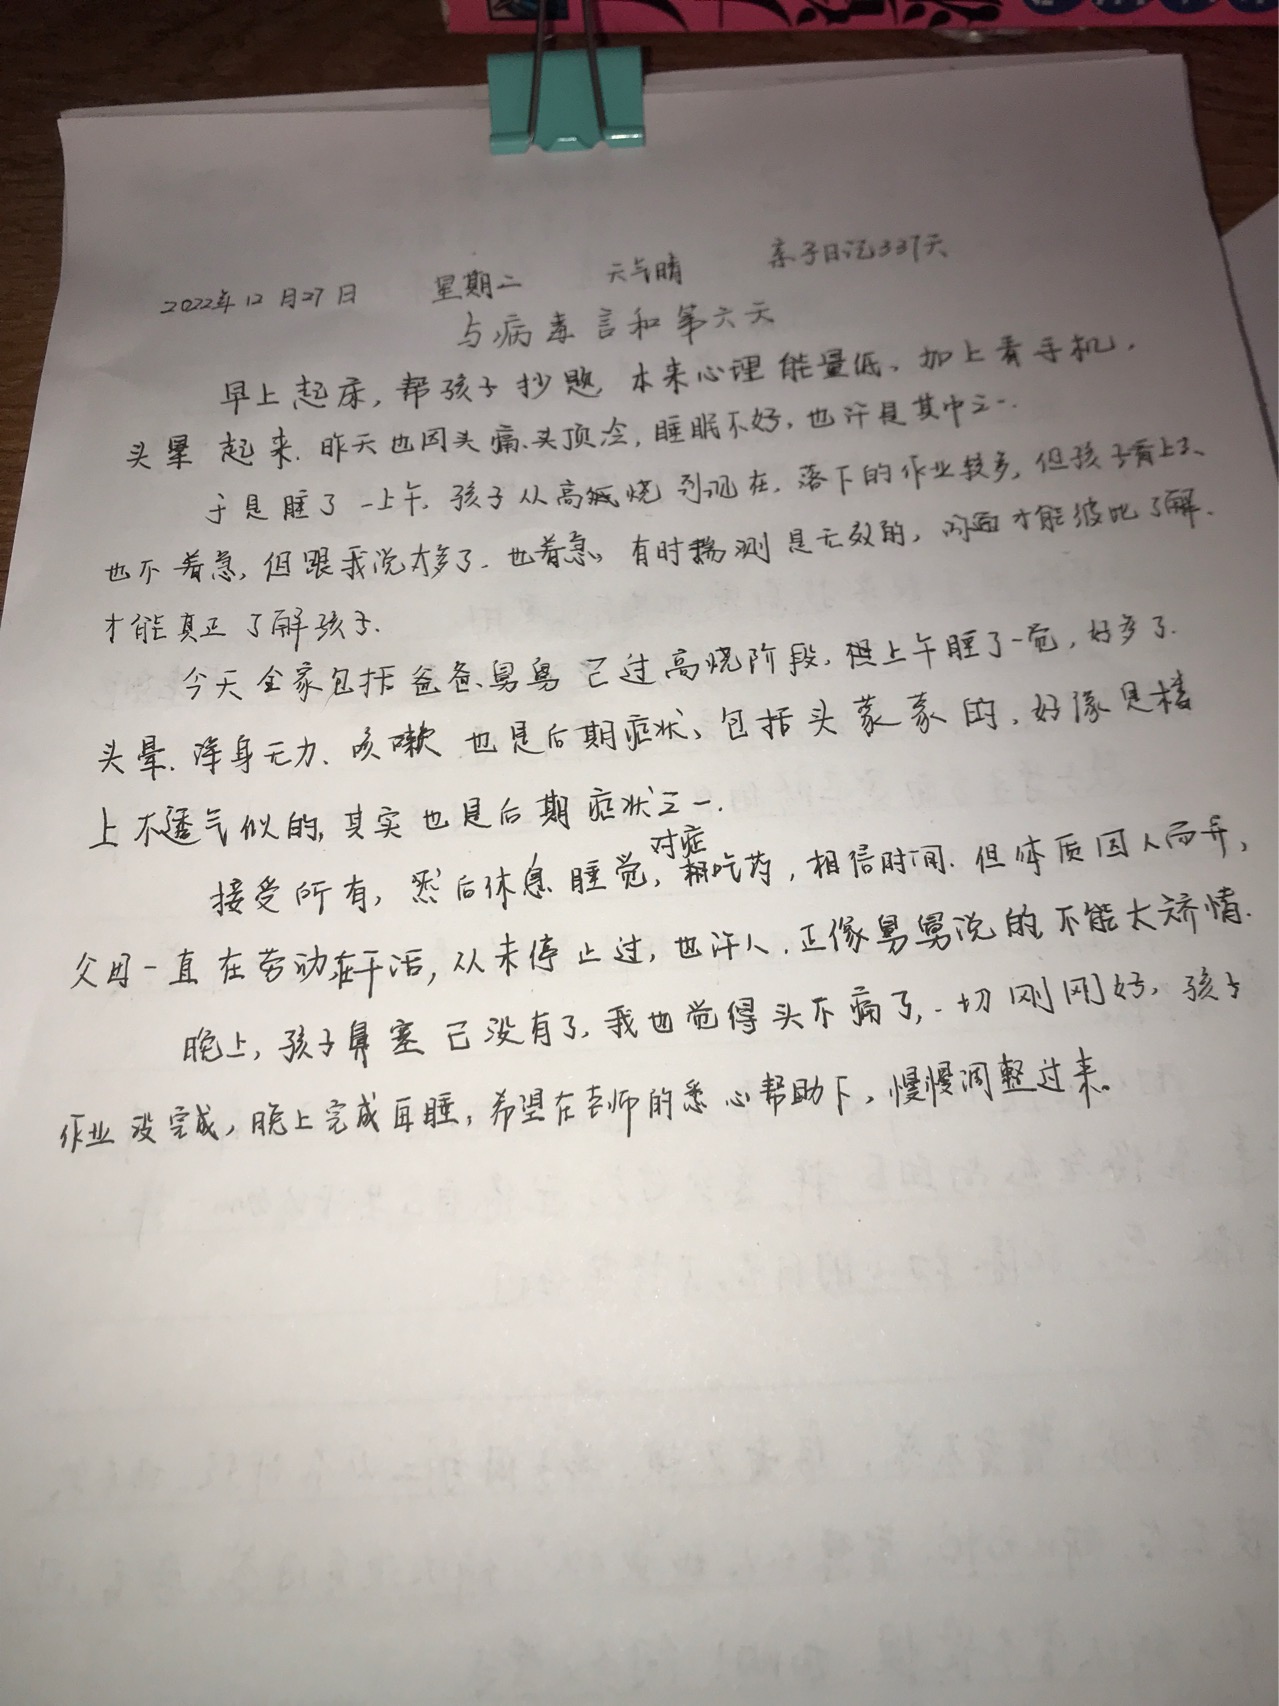 2022年12月27日 星期二 天气晴 亲子日记337天
与病毒言和第六天
早上起床,帮孩子抄题,本来心理能量低、加上看手机,
头晕起来.昨天也因头痛、头顶冷,睡眠不好,也许是其中之一.
于是睡了一上午,孩子从高烧到现在,落下的作业较多,但孩子看上去、
也不着急,但跟我说太多了.也着急,有时揣测是无效的,沟通才能彼此了解.
才能真正了解孩子.
今天全家包括爸爸、舅舅已过高烧阶段,想上午睡了一觉,好多了.
头晕、浑身无力、咳嗽也是后期症状、包括头蒙蒙的,好像是楼
上不透气似的,其实也是后期症状之一.
接受所有,然后休息睡觉,对症吃药,相信时间.但体质因人而异,
父母一直在劳动在干活,从未停止过,也许人,正像舅舅说的,不能太矫情.
晚上,孩子鼻塞已没有了,我也觉得头不痛了,一切刚刚好,孩子
作业没完成,晚上完成再睡,希望在老师的悉心帮助下,慢慢调整过来。